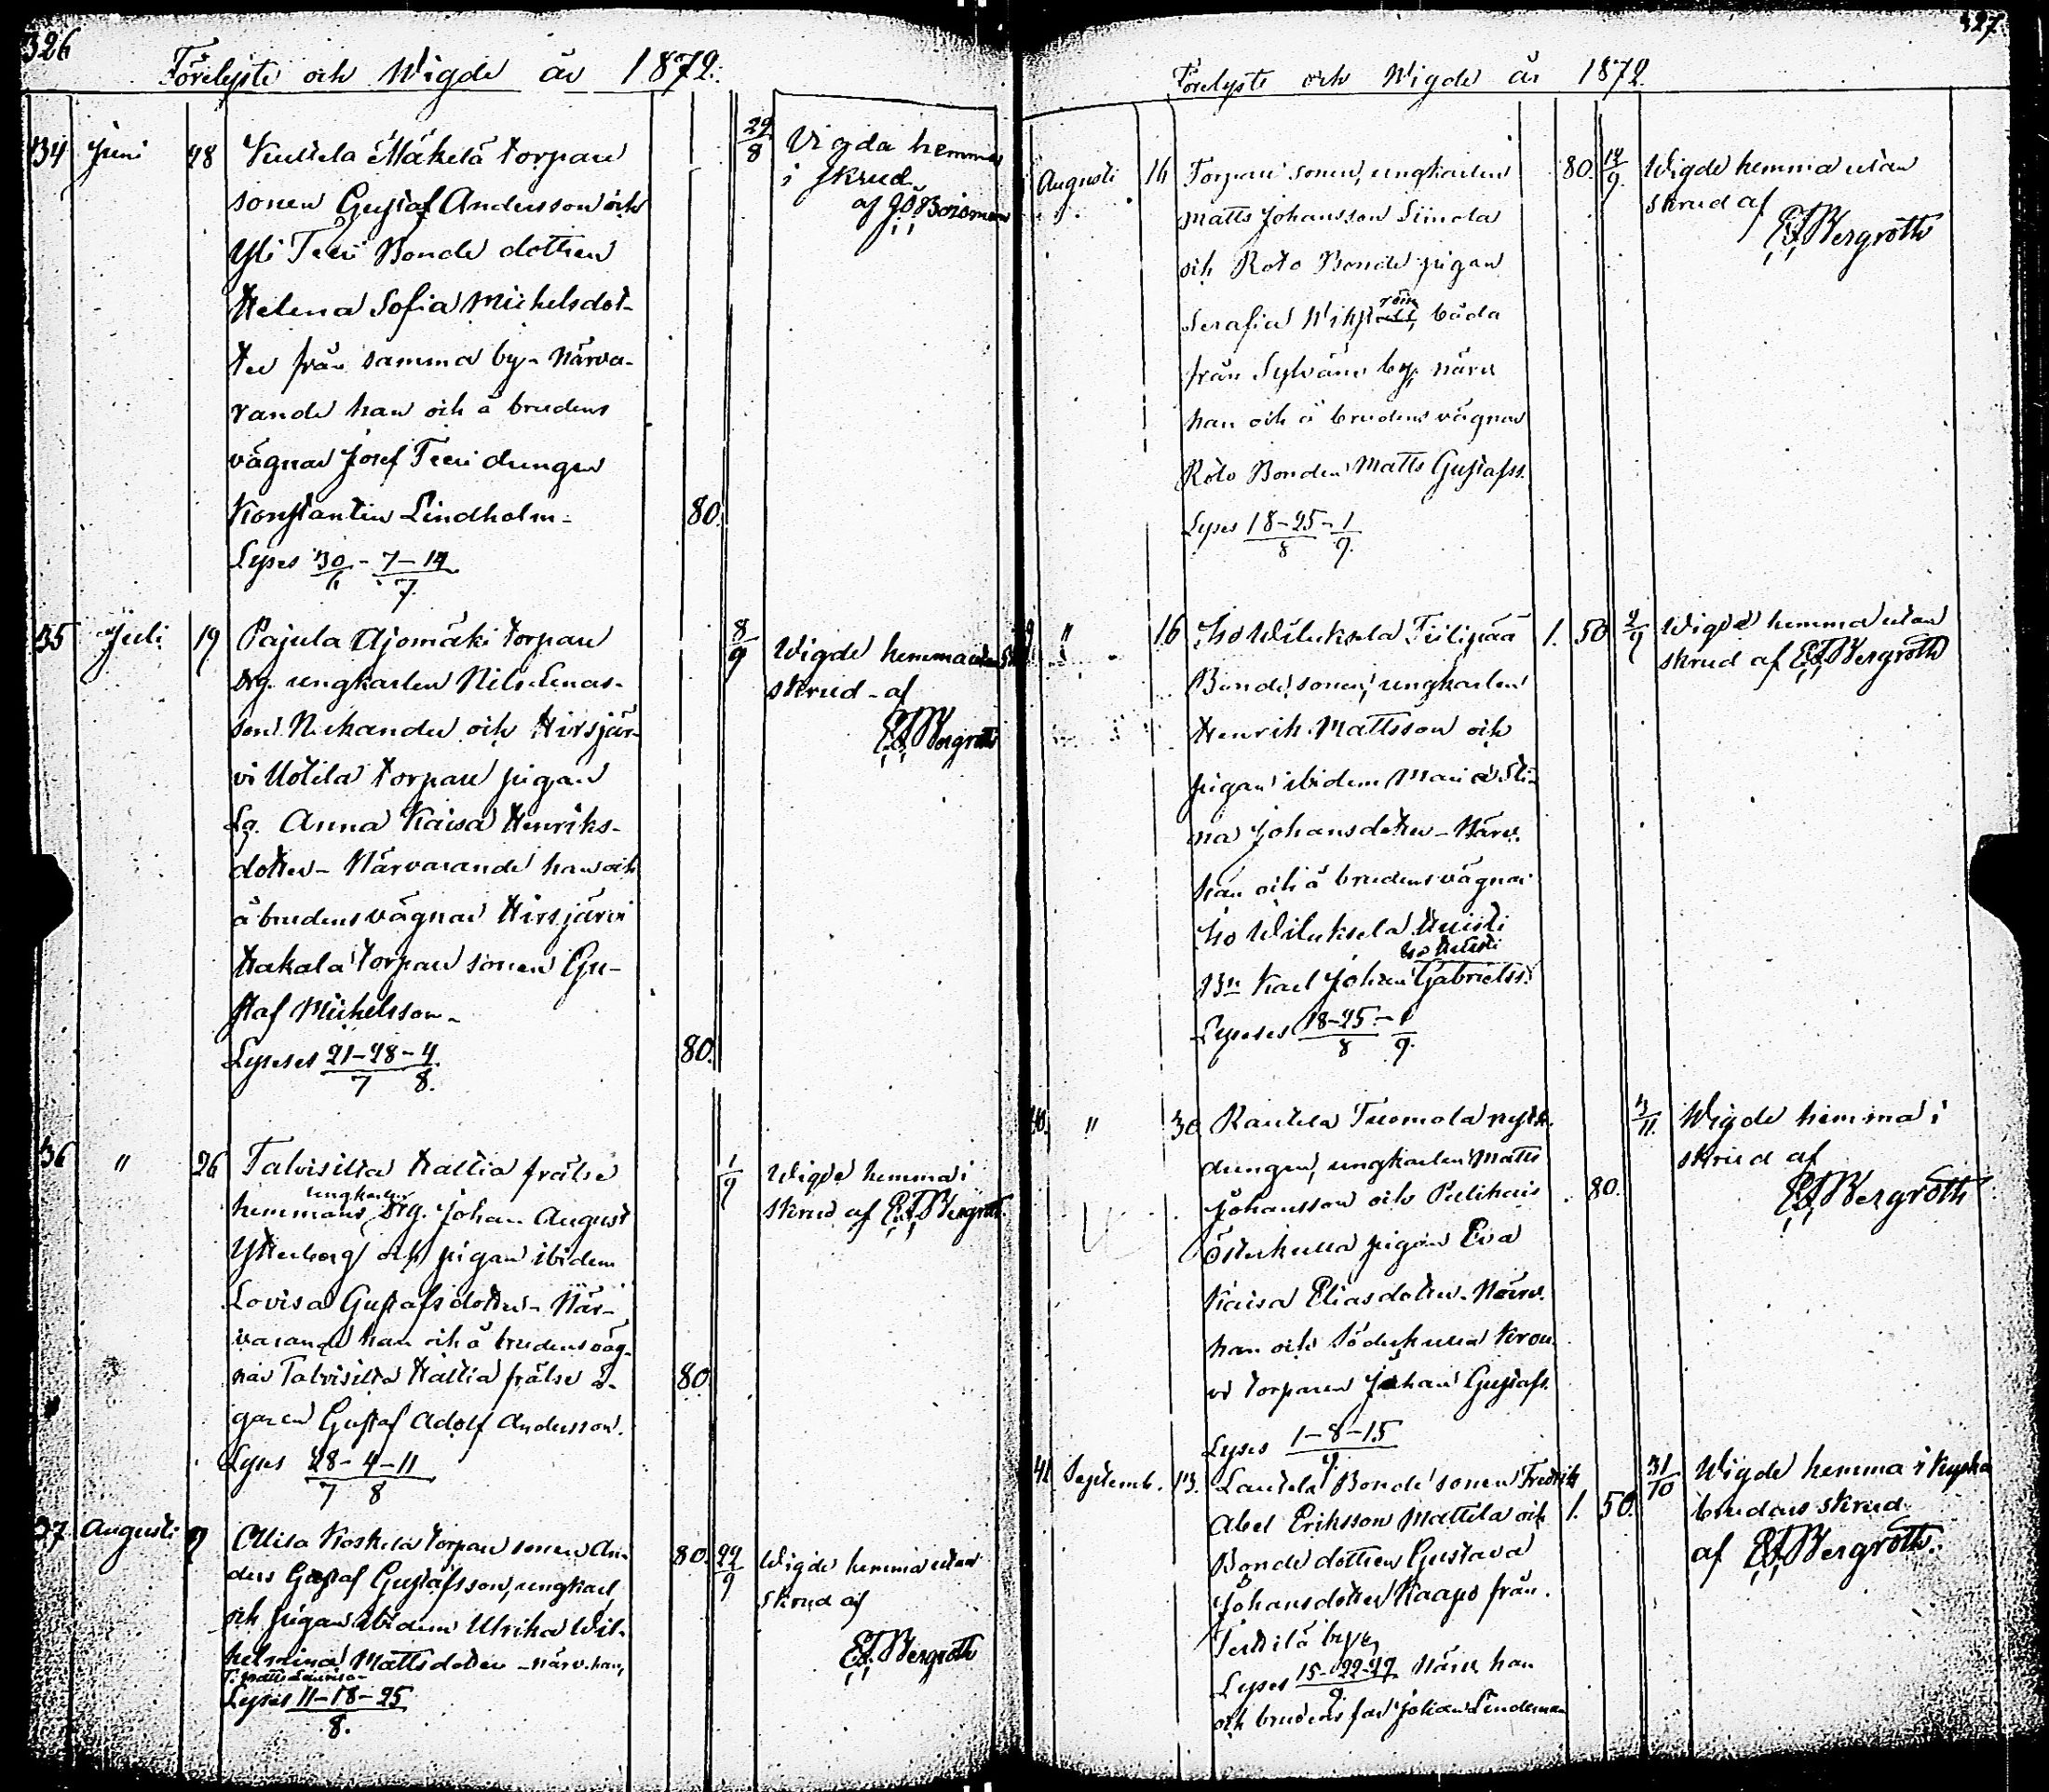 326
Förelyste och Wigde år 1872.
34 Juni 28 Kuttela Mäkelä torpare
sonen Gustaf Andersson och
Yli Teeri Bonde dottren
Helena Sofia Michelsdot-
ter från samma by - Närva-
rande han och å brudens
vägnar Josef Teeri drengen
Konstantin Lindholm - 80.
Lyses 30/6 - 7-14/7
29/8 Vigda hemma
i skrud
af
35 Juli 19 Pajula Ajomäki torpare
drg. ungkarlen Nils Enas-
son Nikander och Hirsjär-
vi Uotila torpare pigan
Lg. Anna Kaisa Henriks-
dotter - Närvarande han och
å brudens vägnar Hirsjärvi
Hakala torpare sonen Gu-
staf Michelsson -
Lyses 21-28-4 80.
7 8.
8/9 Wigde hemma utan
skrud - af
E.J. Bergroth
36 " 26 Talvisilta Hallia frälse
ungkarlen
hemmans drg. Johan August
Ytterberg och pigan ibidem
Lovisa Gustafsdotter - När-
varande han och å brudens väg-
nar Talvisilta Hallia frälse ä- 80.
garen Gustaf Adolf Andersson.
Lyses 28-4-11
7 8
1/9 Wigde hemma i
skrud af E.J. Bergroth
37. Augusti 9 Ollila Koskela torpare sonen An-
ders Gustaf Gustafsson, ungkarl
och pigan ibidem Ulrika Wil-
helmina Mattsdotter - närv. han,
Lyses 11-18-25
8.
80. 22/9 Wigde hemma utan
skrud af
E.J. Bergroth
327.
Förelyste och Wigde år 1872.
Augusti 16 Torpare sonen, ungkarlen
Matts Johansson Simola
och Roto Bonde pigan
Serafia Wikström, båda
från Sylvänä by, närv.
han och å brudens vägnar
Roto Bonden Matts Gustafss.
Lyses 18-25-1
8 9.
80. 14/9. Wigde hemma utan
skrud af
E.J. Bergroth
" 16 Iso Wiluksela Tiilipää
Bonde sonen, ungkarlen
Henrik Mattsson och
pigan ibidem Maria Sti-
na Johansdotter - Närv.
han och å brudens vägnar
Iso Wiluksela
Bn Karl Johan Gabrielss.
Lyses 18-25-1
8 9.
1. 50 Wigde hemma utan
skrud af E.J. Bergroth
40. " 30 Rautela Tuomola
drengen, ungkarlen Matts
Johansson och Pulikais 80.
Österkulla pigan Eva
Kaisa Eliasdotter. Närv.
han och Söderkulla Krou
vi torparen Johan Gustafs.
Lyses 1-8-15
9.
3/11. Wigde hemma i
skrud af
E.J. Bergroth
41 Septemb. 13. Lautela Bonde sonen Fredrik
Abel Eriksson Mattila och 1. 50.
Bonde dottren Gustava
Johansdotter Kaapo från
Terttilä by.
Lyses 15-22-27 Närv. han
9
och brudens far Johan Lindeman
31/10 Wigde hemma i kyrko
brudens skrud
af E.J. Bergroth.